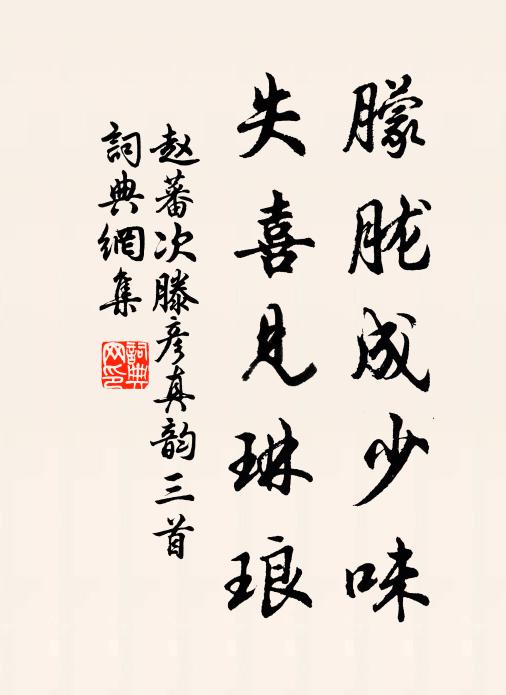 朦胧成少味
失喜見琳琅
赵蕃次滕彦真韵三首
詞典網集
詞典网印